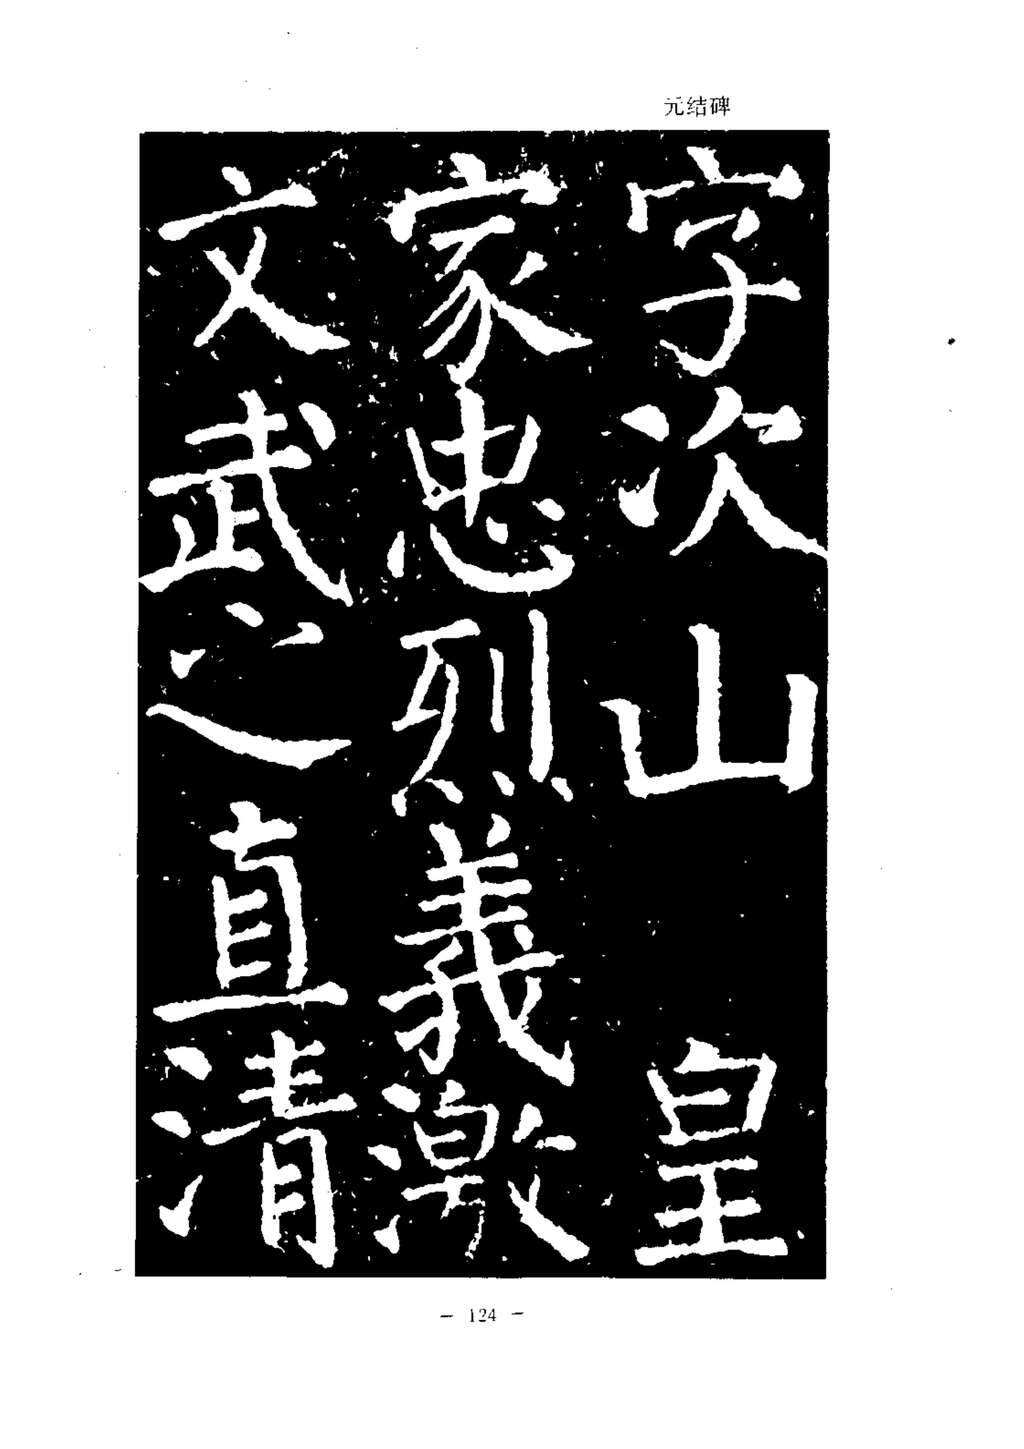 元结碑
字次山 皇
家忠烈義激
文武之直清
- 124 -